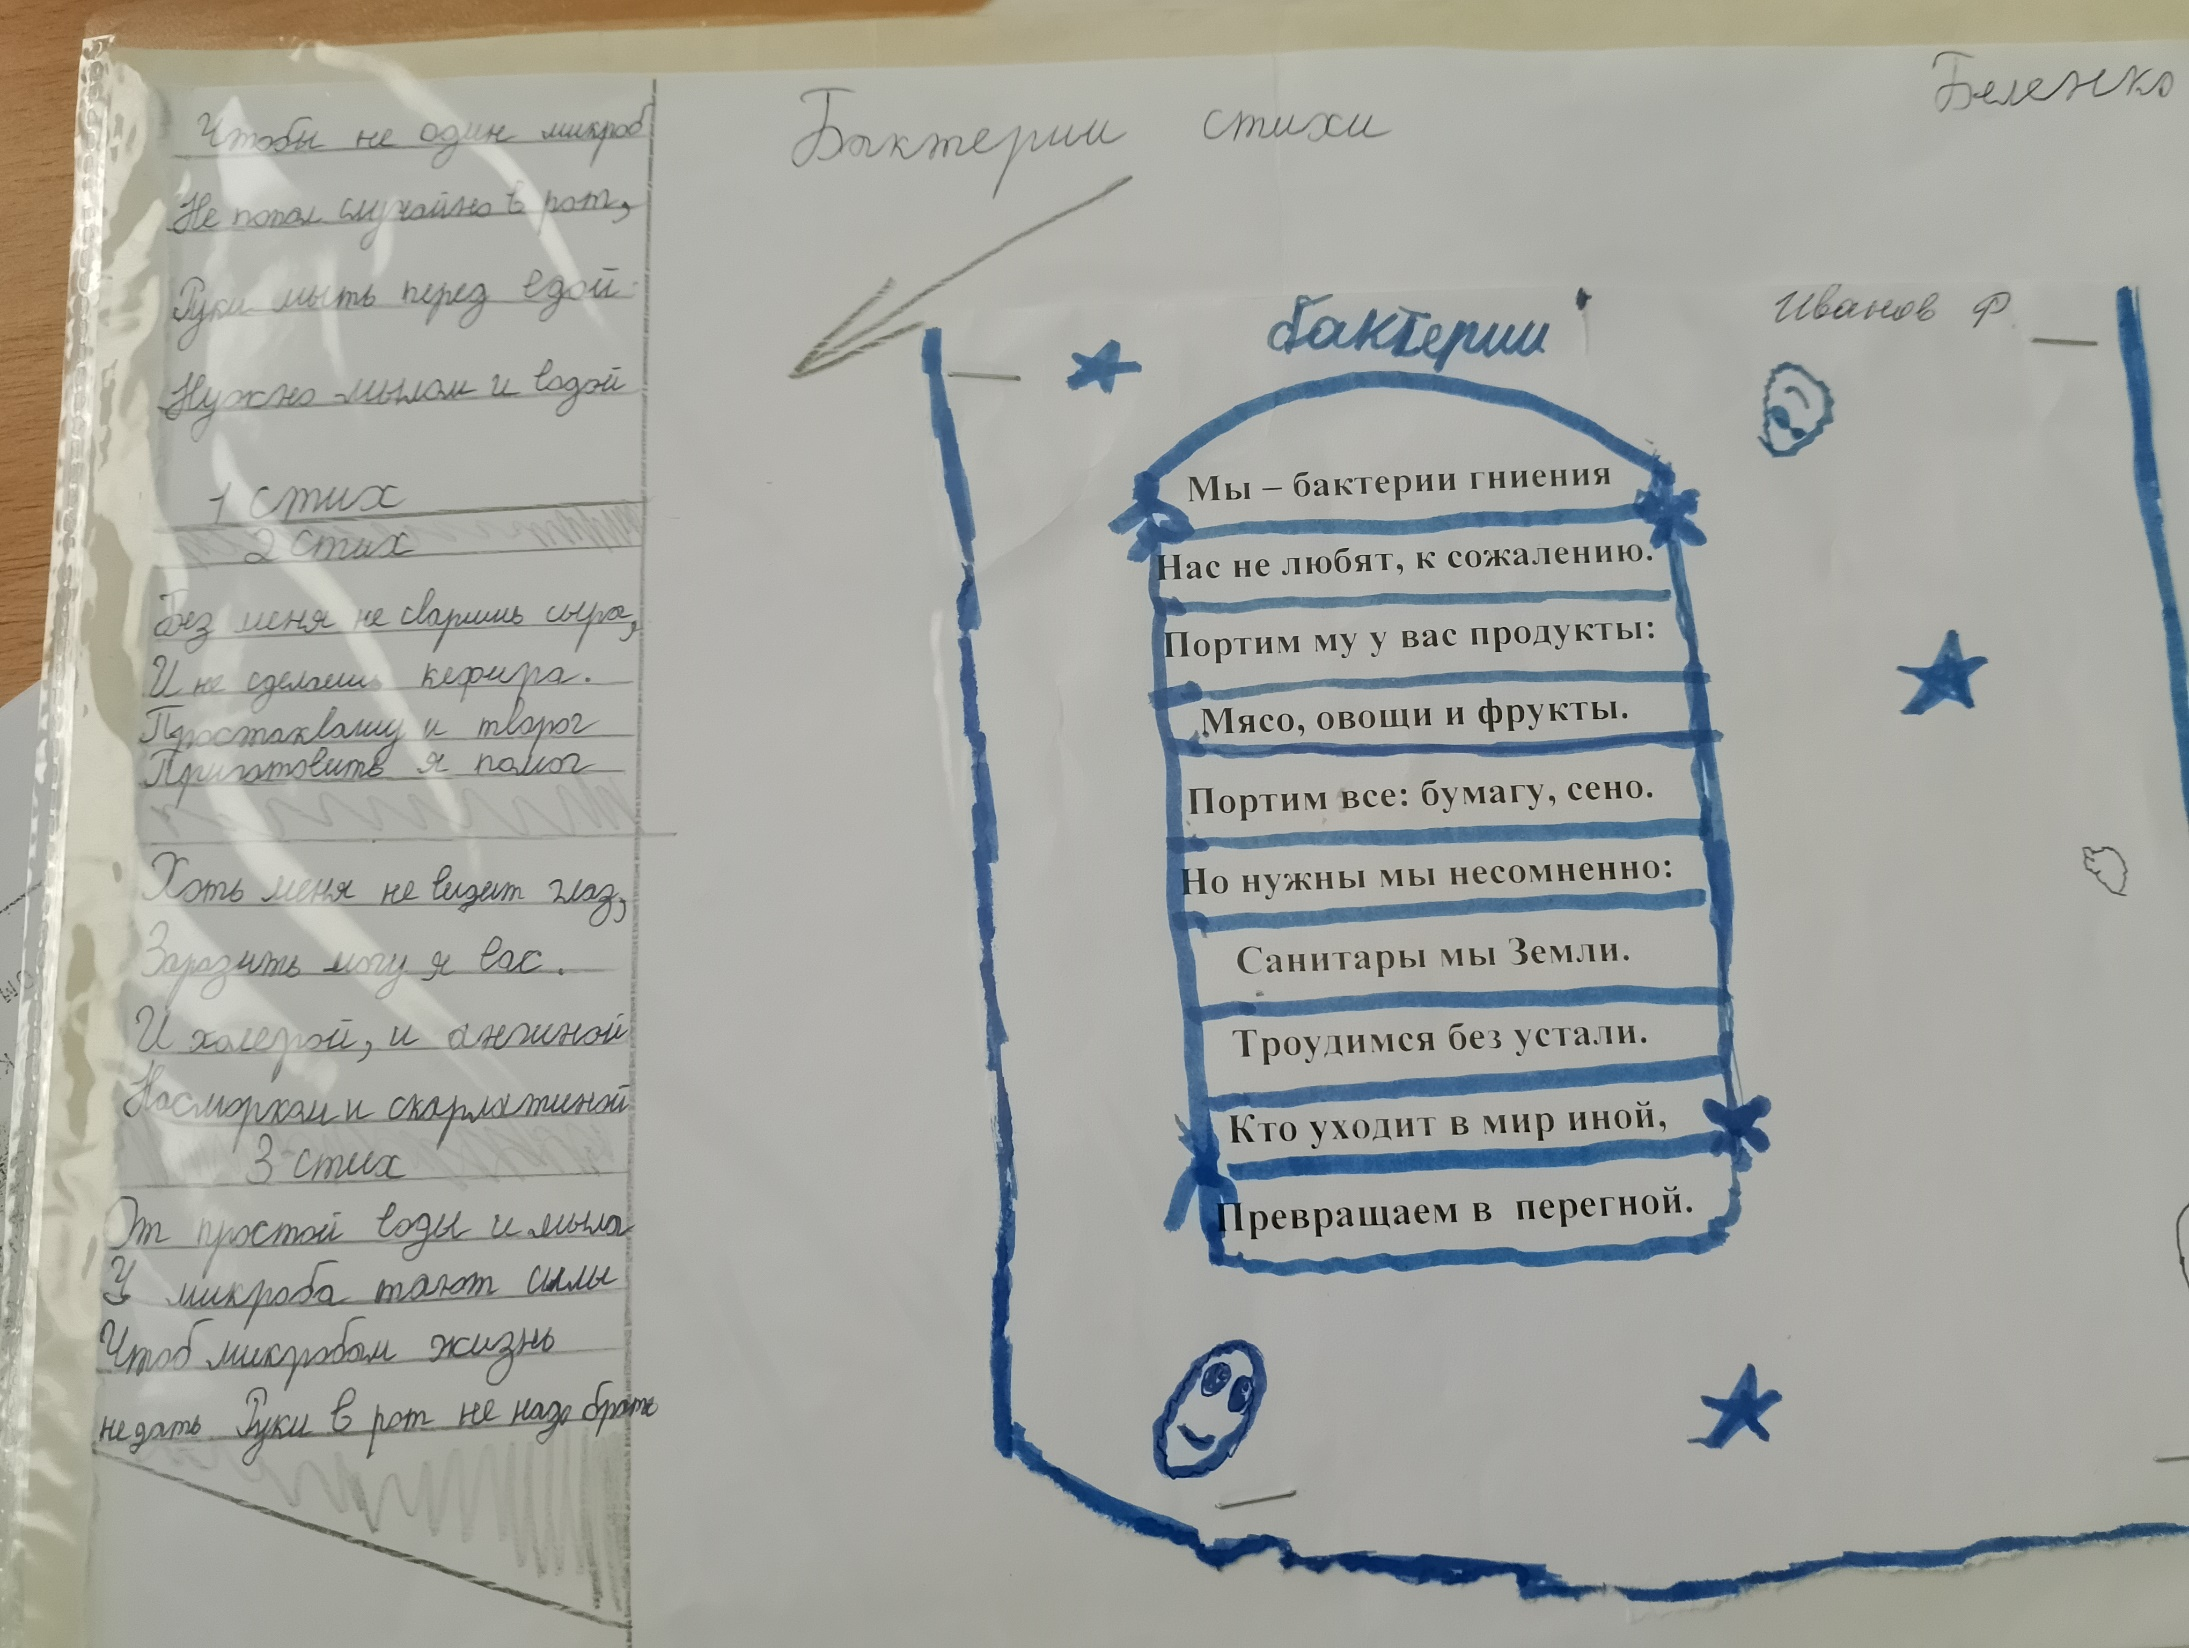 Чтобы не один микроб
Не попал случайно в рот,
Руки мыть перед едой
Нужно мылом и водой
1 стих
2 стих
Без меня не сваришь сыра,
И не сделаешь кефира.
Простаквашу и творог
Приготовить я помог
Хоть меня не видит глаз,
Заразить могу я вас.
И холерой, и ангиной
Насморком и скарлатиной
3 стих
От простой воды и мыла
У микроба тают силы
Чтоб микробам жизнь
не дать Руки в рот не надо брать
Бактерии стихи
Беленко
бактерии
Иванов Р
Мы – бактерии гниения
Нас не любят, к сожалению.
Портим му у вас продукты:
Мясо, овощи и фрукты.
Портим все: бумагу, сено.
Но нужны мы несомненно:
Санитары мы Земли.
Троудимся без устали.
Кто уходит в мир иной,
Превращаем в перегной.